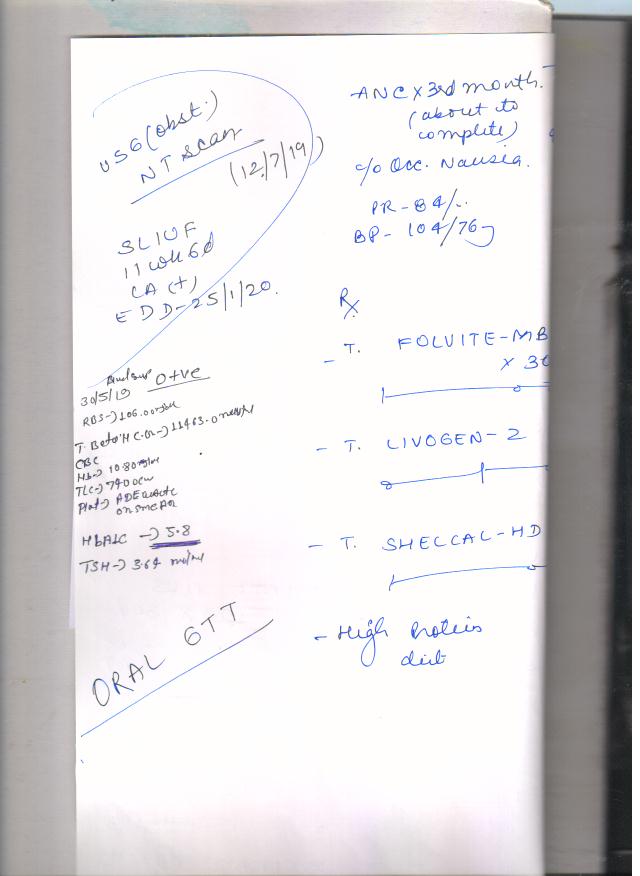 USG (obst.)
NT scan
(12/7/19)
SLIUF
11 wk 6d
CA (+)
EDD - 25/1/20.
30/5/19 O+ve
RBS -> 106.00
T. Beta HCG -> 11463.0
CBC
Hb -> 10.80
TLC -> 7900
Plat -> ADEquate
on smear
HbA1c -> 5.8
TSH -> 3.64
ORAL GTT
ANC x 3rd month.
(about to
complete)
c/o Occ. Nausia.
PR - 84/..
BP - 104/76
Rx
- T. FOLVITE-MB
x 30
- T. LIVOGEN-Z
- T. SHELCAL-HD
- High Protein
diet